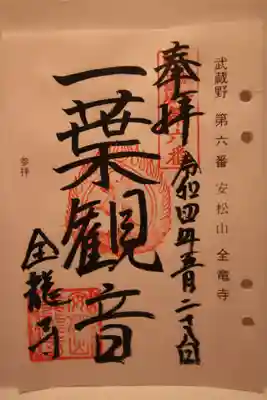 武蔵野 第六番 安松山 全竜寺
奉拝
令和四年五月二十八日
一葉観音
全龍寺
参拝